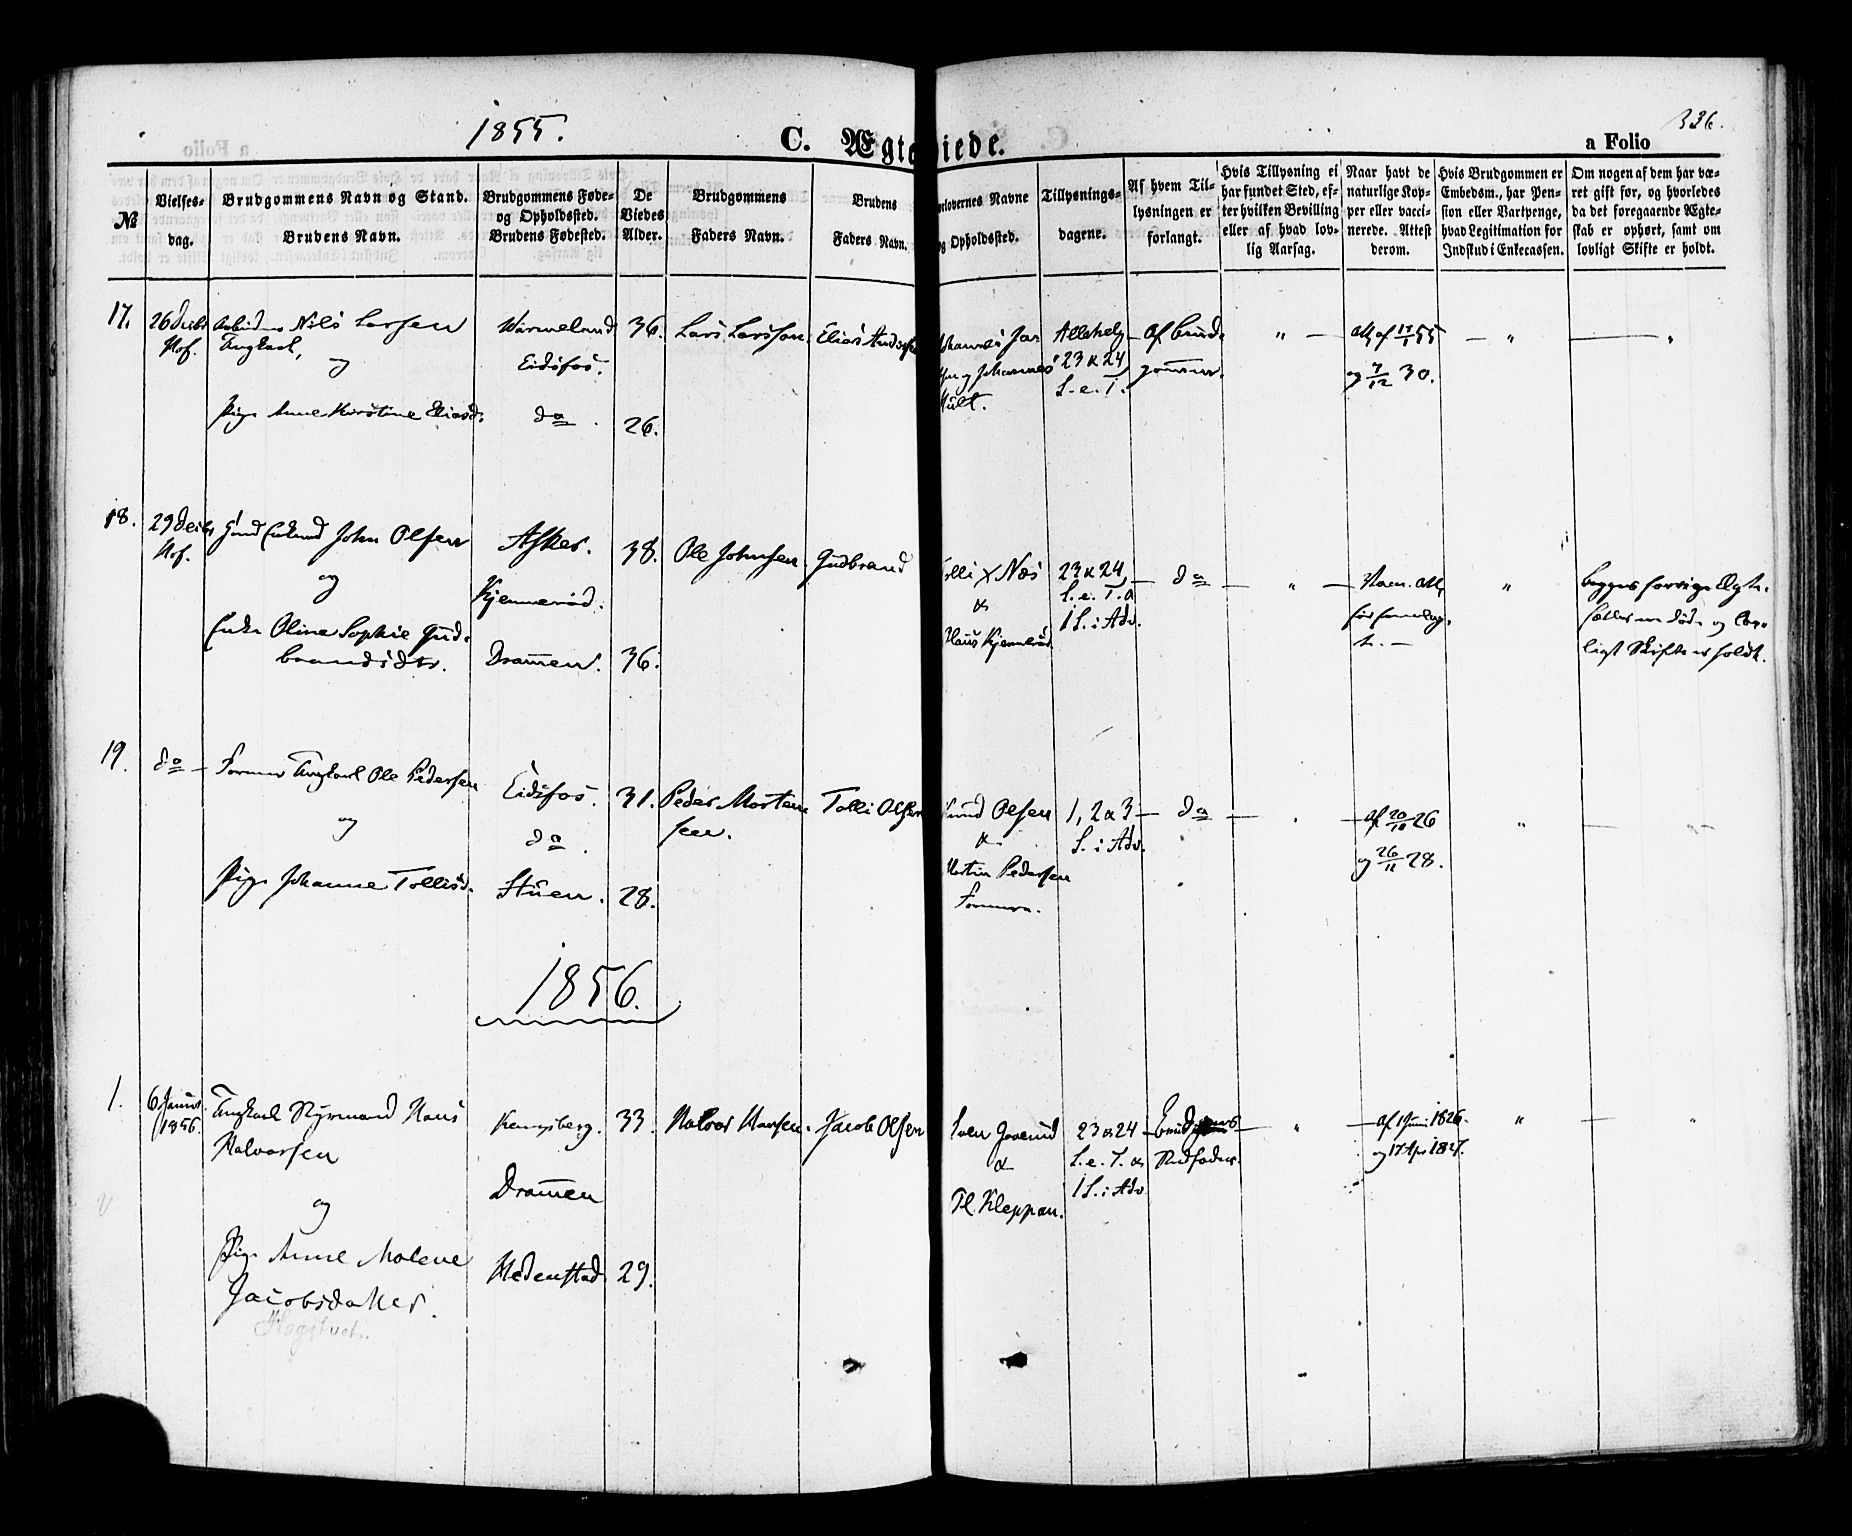 1855.
C. Ægteviede.
a Folio
336.
№
Vielses-
dag.
Brudgommens Navn og Stand.
Brudens Navn.
Brudgommens Føde-
og Opholdssted.
Brudens Fødested.
De
Viedes
Alder.
Brudgommens
Faders Navn.
Brudens
Faders Navn.
orlovernes Navne
og Opholdssted.
Tillysnings-
dagene.
Af hvem Til-
lysningen er
forlangt.
Hvis Tillysning ei
har fundet Sted, ef-
ter hvilken Bevilling
eller af hvad lov-
lig Aarsag.
Naar havt de
naturlige Kop-
per eller vacci-
nerede. Attest
derom.
Hvis Brudgommen er
Embedsm., har Pen-
sion eller Vartpenge,
hvad Legitimation for
Indskud i Enkecassen.
Om nogen af dem har væ-
ret gift før, og hvorledes
da det foregaaende Ægte-
skab er ophørt, samt om
lovligt Skifte er holdt.
17.
26 Decbr
Hof.
Nils Larsen
Ungkarl,
og
Pige Anne Kirstine Eliasd.
Wærmeland
Eidsfos.
do
36.
26.
Lars Larsson
Elias Anders
Johannes
og Johannes
Hult.
Allehelg
23 & 24
S. e. T.
Af Brud-
gommen.
"
Att. af 17/1 55
og 7/12 30.
"
"
18.
29 Decbr
Hof.
Gmd Enkmd John Olsen
og
Enke Oline Sophie Gud-
brandsdtr.
Asker.
Kjennerød.
Drammen.
38.
36.
Ole Johnsen
Gudbrand
Tolli Næs
&
Hans Kjennerød
23 & 24
S. e. T. &
1 S. i Adv.
do
"
Vacc. Att.
før fremlag-
t.
"
Begges forrige Ægte-
fæller er døde og lov-
ligt Skifte er holdt.
19.
do
Former Ungkarl Ole Pedersen
og
Pige Johanne Tollisd.
Eidsfos.
do
Stuen.
31.
28.
Peder Morten
sen.
Tolli Olsen
Olsen
&
Martin Pedersen
Formere.
1, 2 & 3
S. i Adv.
do
af 20/10 26
og 26/11 28.
"
1856.
1.
6 Januar
1856.
Ungkarl Styrmand Hans
Halvorsen
og
Pige Anne Malene
Jacobsdatter.
Kongsberg.
Drammen
Hedenstad
33.
29.
Halvor Hansen
Jacob Olsen
&
Kleppan.
23 & 24
S. e. T. &
1 S. i Adv
Brudens
Stedfader.
"
af 1 Juni 1826.
og 17 Apr 1827.
"
"